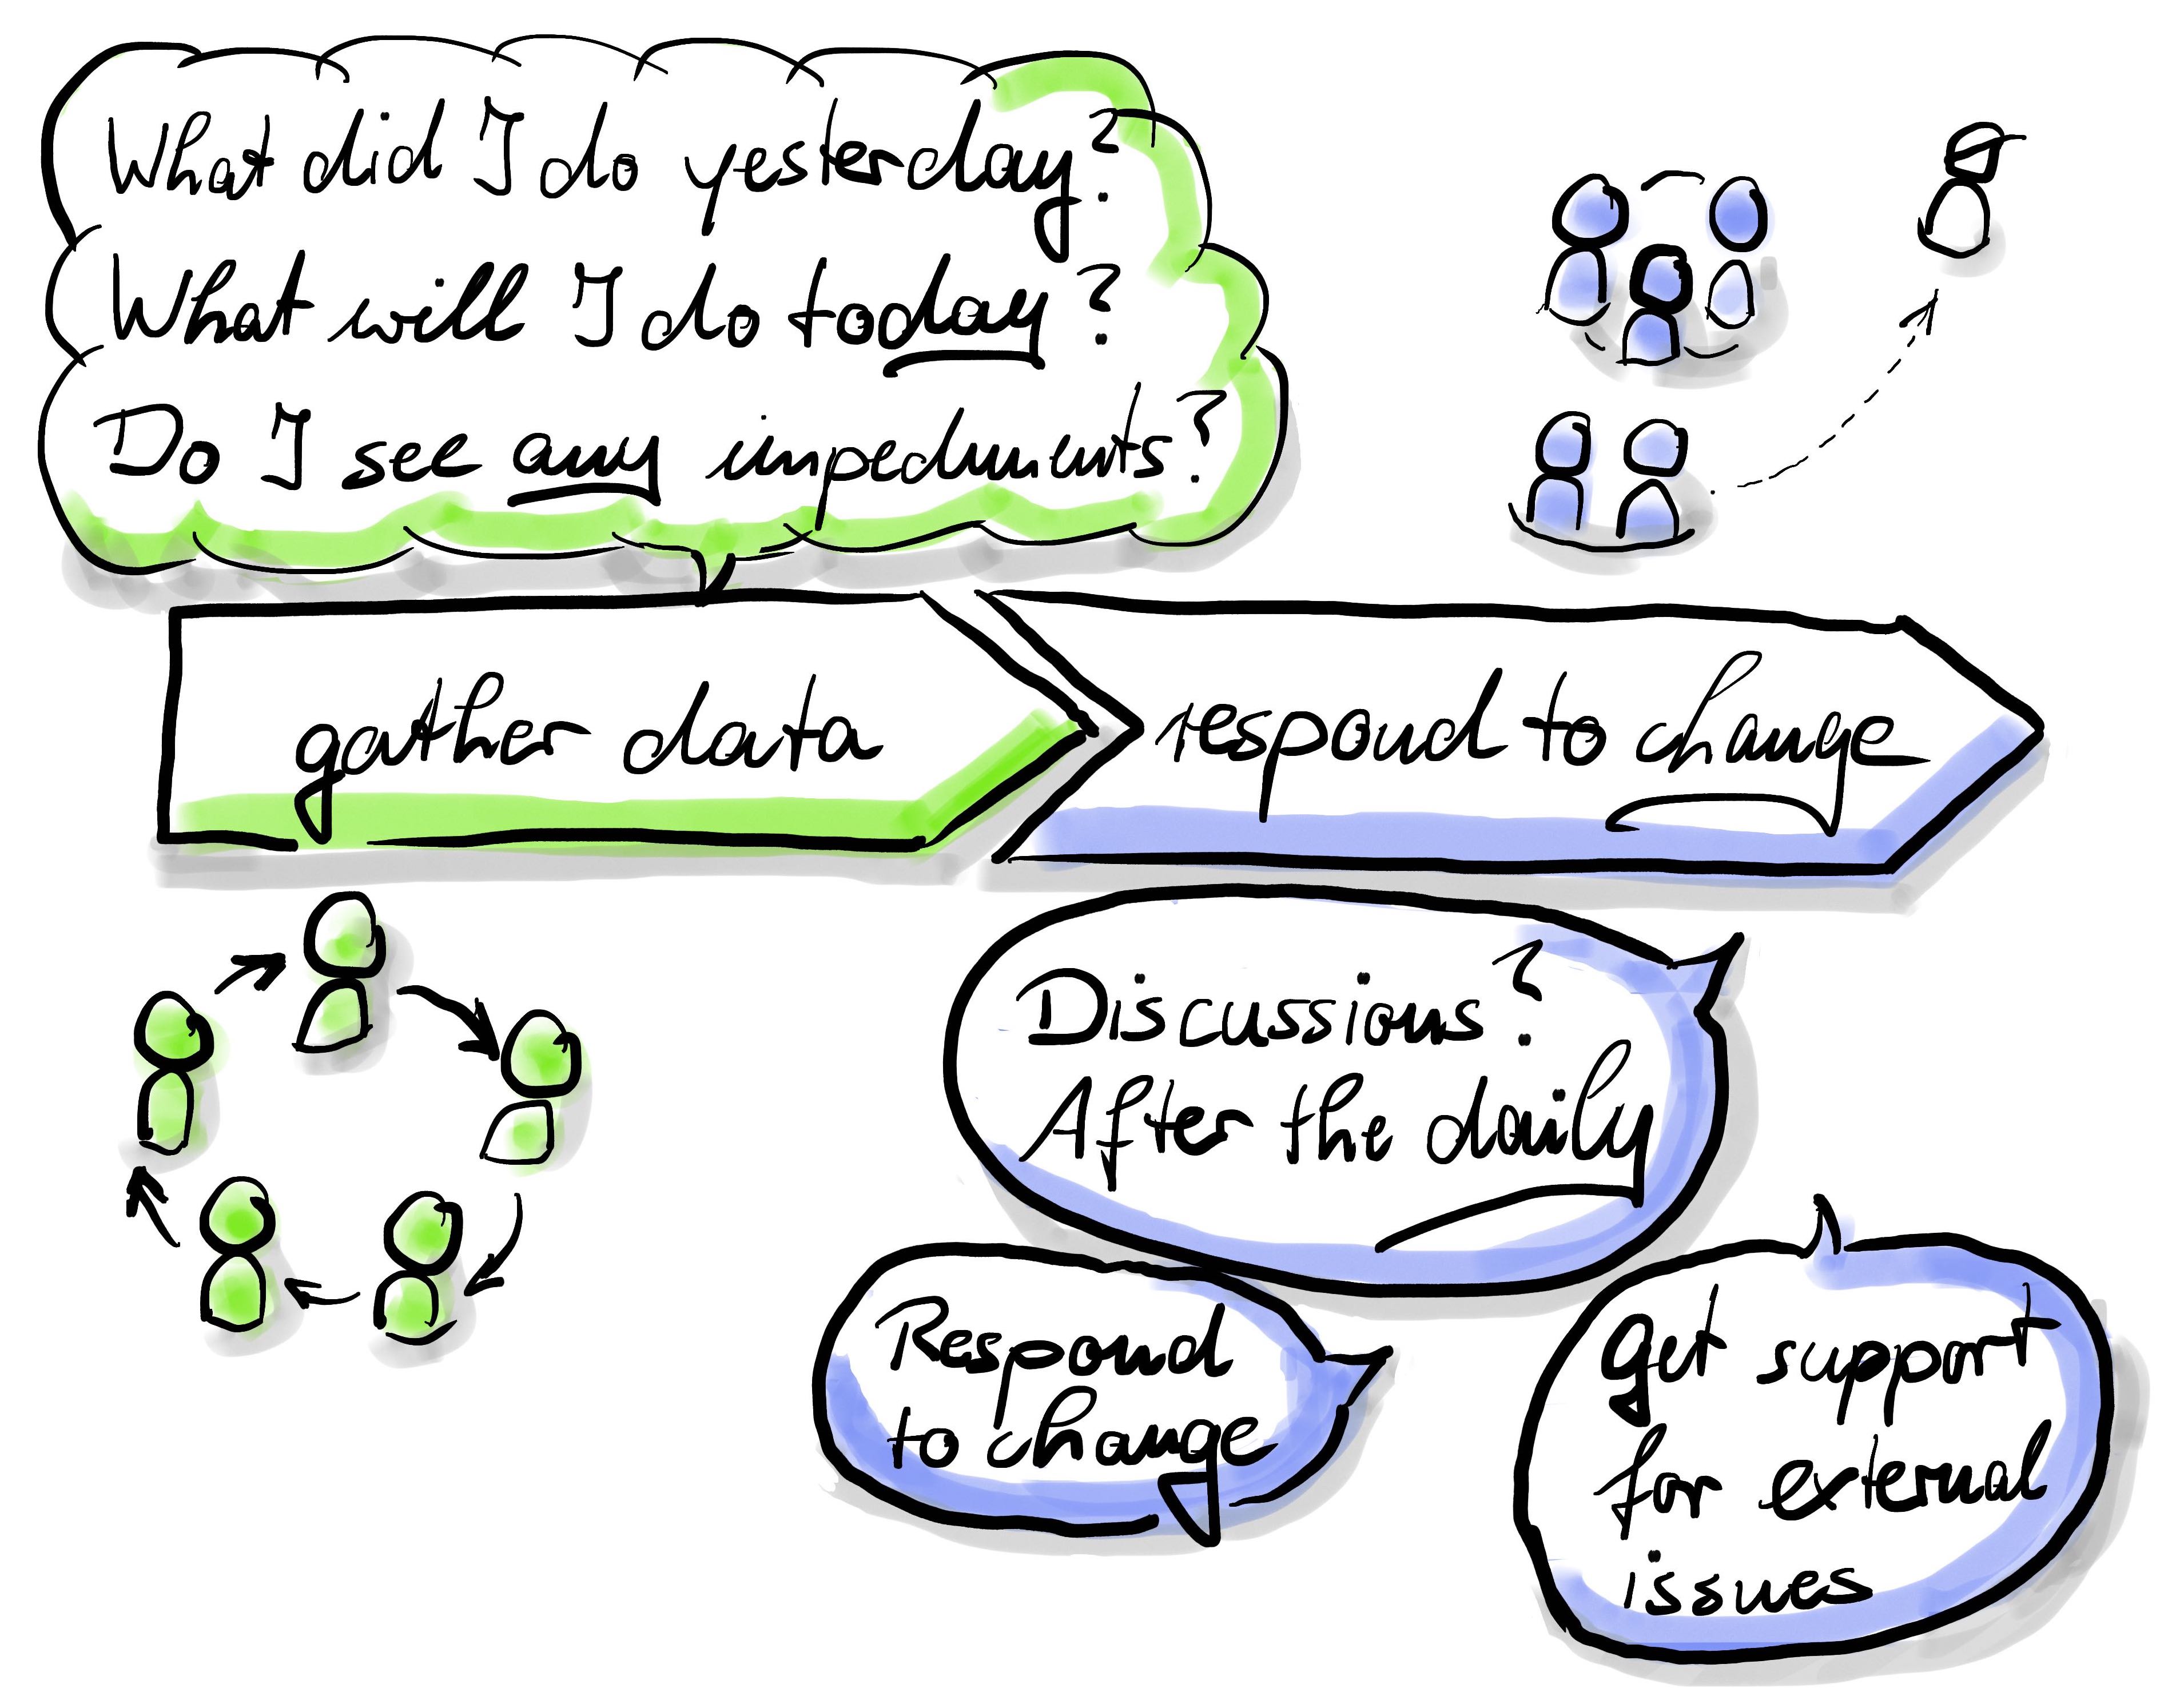 What did I do yesterday?
What will I do today?
Do I see any impediments?
gather data
respond to change
Discussions?
After the daily
Respond
to change
get support
for external
issues